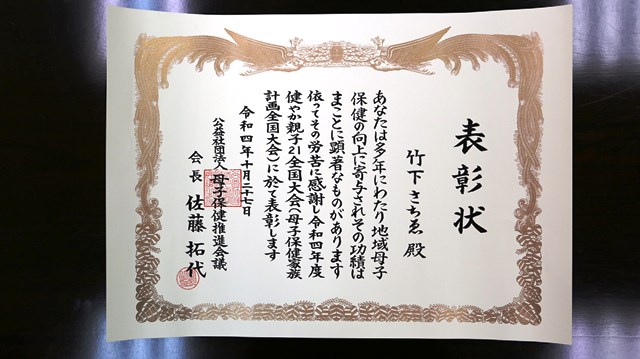 表彰状
竹下さちゑ 殿
あなたは多年にわたり地域母子
保健の向上に寄与されその功績は
まことに顕著なものがあります
依ってその労苦に感謝し令和四年度
健やか親子21全国大会(母子保健家族
計画全国大会)に於て表彰します
令和四年十月二十七日
公益社団法人 母子保健推進会議
会長 佐藤拓代